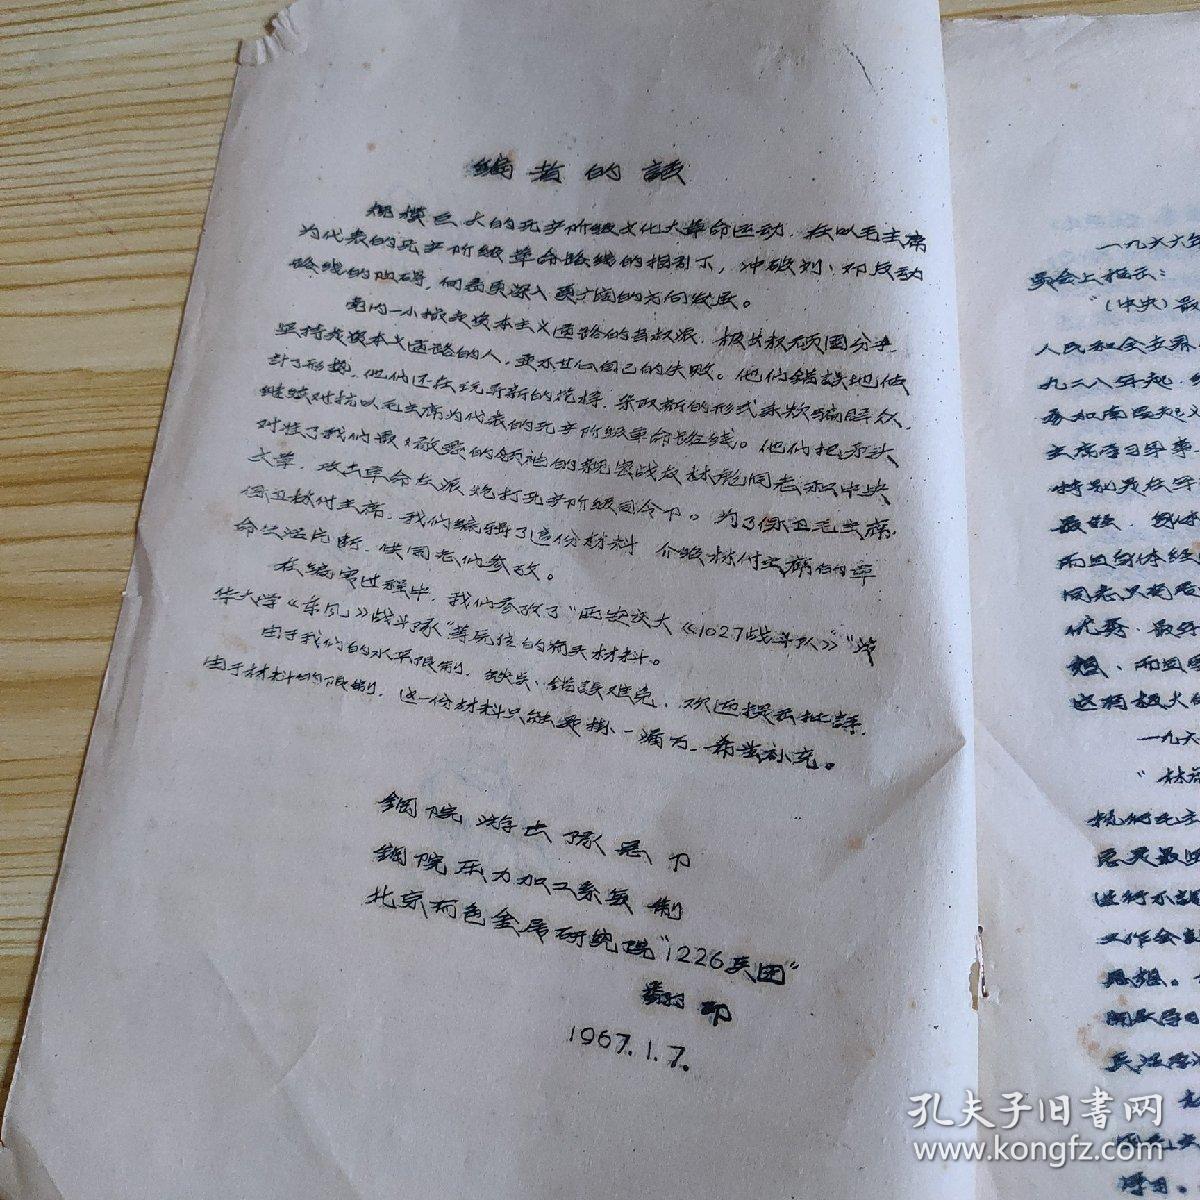 编者的話
规模巨大的无产阶级文化大革命运动，在以毛主席
为代表的无产阶级革命路线的指引下，冲破刘、邓反动
路线的阻碍，向着更深入更广阔的方向发展。
党内一小撮走资本主义道路的当权派，极少数顽固分子，
坚持走资本主义道路的人，更不甘心自己的失败。他们错誤地估
計了形势，他们还在玩弄新的花样，采取新的形式来欺骗群众，
继续对抗以毛主席为代表的无产阶级革命路线。他们把矛头
对准了我们最最敬爱的领袖的亲密战友林彪同志和中央
文革，攻击革命左派炮打无产阶级司令部。为了保卫毛主席，
保卫林付主席，我们编辑了这份材料 介绍林付主席的革
命生活片断，供同志们参攷。
在编写过程中，我们参攷了“西安交大《1027战斗队》”“
华大学《东风》战斗隊”等兄弟单位的有关材料。
由于我们的水平限制，缺点、错誤难免，欢迎提出批評，
由于材料的限制，这一份材料只能是挂一漏万，希望补充。
鋼院游击隊总部
鋼院压力加工系复制
北京有色金属研究院“1226兵团”
翻印
1967.1.7.
一九六六年
员会上指示：
“（中央）最
人民和全世界
九二八年起，
参加南昌起义
主席
特别是在
最強，
而且身体
同志只有
优秀、最
想，而且
这将极大
一九六
“林
工作会
思想。
孔夫子旧书网
www.kongfz.com